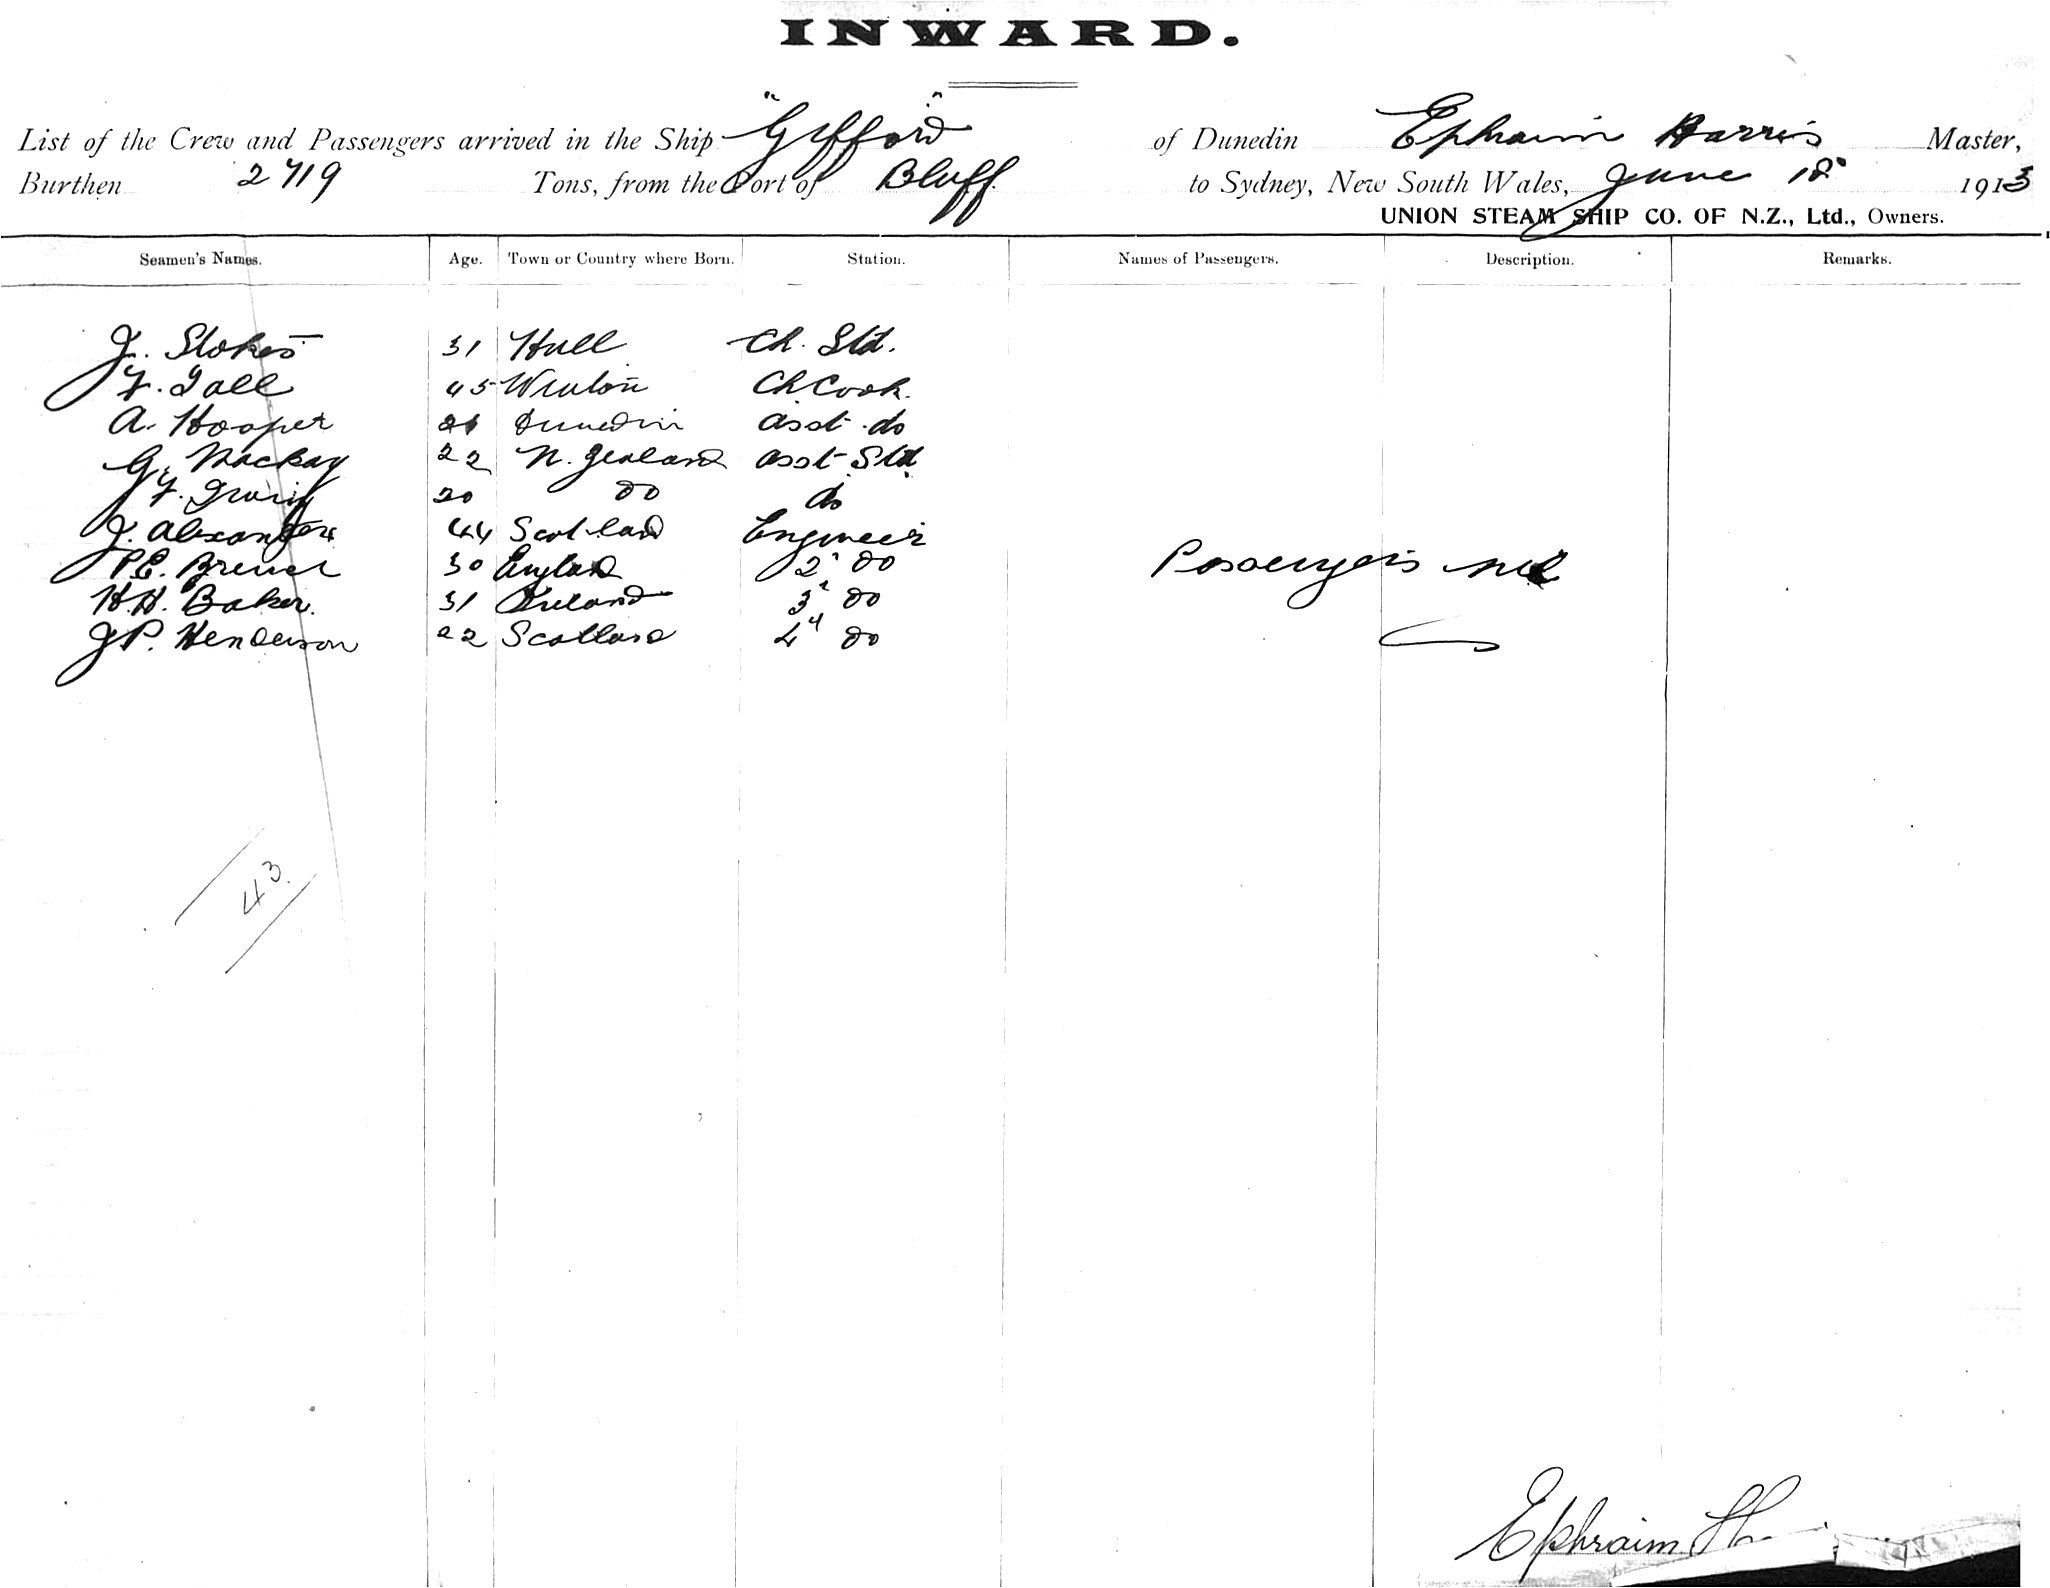 INWARD.
List of the Crew and Passengers arrived in the Ship "Gifford" of Dunedin Ephraim Harris Master,
Burthen 2719 Tons, from the Port of Bluff to Sydney, New South Wales, June 18 1913
UNION STEAM SHIP CO. OF N.Z., Ltd., Owners.
Seamen's Names. Age. Town or Country where Born. Station. Names of Passengers. Description. Remarks.
J. Stokes 31 Hull Ch. Std.
F. Gall 45 Winton Ch Cook.
A. Hooper 21 Dunedin asst do
G. Mackay 22 N. Zealand asst Std
F. 20 do do
J. Alexander 44 Scotland Engineer
P.E. 30 England 2 do
Passengers nil
H.H. Baker. 31 Ireland 3 do
J P. Henderson 22 Scotland 4 do
43.
Ephraim H